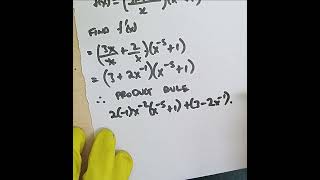 FIND f'(x)
= (3x/x + 2/x)(x⁻⁵+1)
= (3 + 2x⁻¹)(x⁻⁵+1)
∴ PRODUCT RULE
2(-1)x⁻²(x⁻⁵+1)+(3-2x⁻¹).